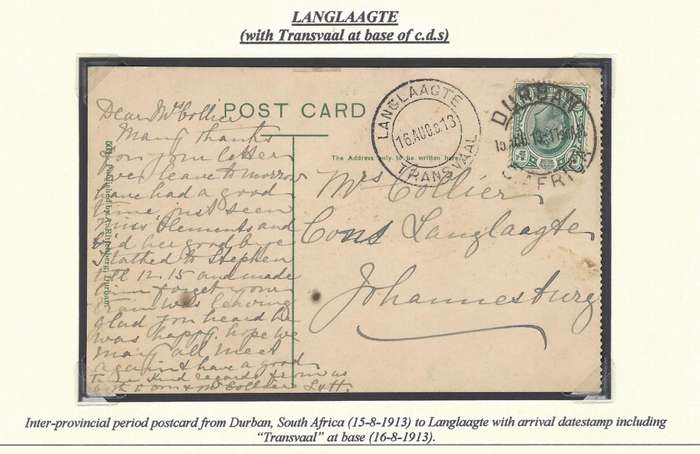 LANGLAAGTE
(with Transvaal at base of c.d.s)
POST CARD
LANGLAAGTE
16.AUG.8.13
TRANSVAAL
DURBAN
S. AFRICA
The Address only to be written here.
Mrs Collier
Cons Langlaagte
Johannesburg
Dear Mrs Collier
Many thanks
for your letter
even leave tomorrow
have had a good
time just seen
Miss Clements and
bid her good bye
I talked to Stephen
till 12.15 and made
him forget your
train was leaving
glad you heard he
was happy. hope we
may all meet
again & have a good
time kind regards from us
both to you & Mr Collier
Inter-provincial period postcard from Durban, South Africa (15-8-1913) to Langlaagte with arrival datestamp including
“Transvaal” at base (16-8-1913).